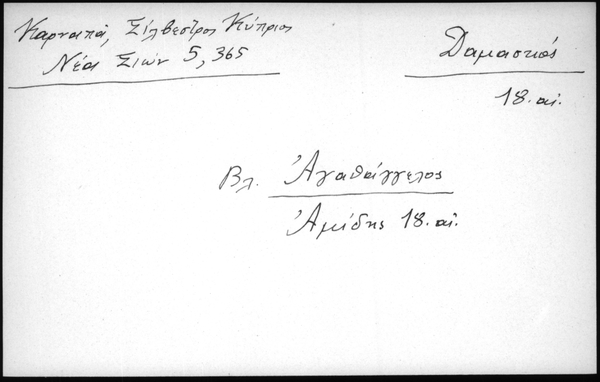 Καρναπᾶ, Σίλβεστρος Κύπριος
Νέα Σιών 5, 365
Δαμασκός
18. αἰ.
Βλ. Ἀγαθάγγελος
Ἀμίδης 18. αἰ.